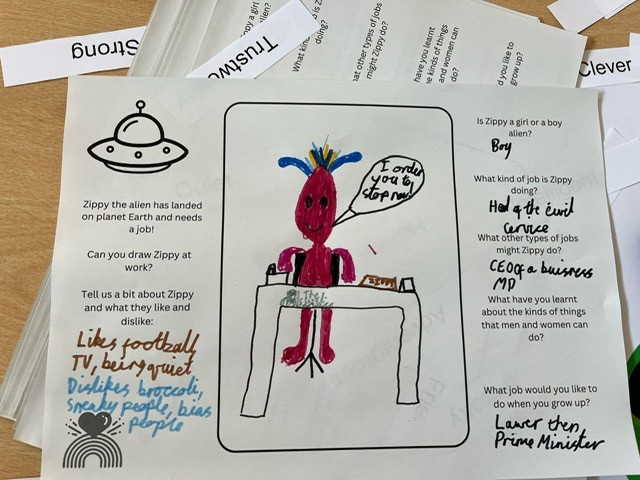 Strong
Trustwo
Clever
What kin
is Zi
doing?
hat other types of jobs
might Zippy do?
have you learnt
e kinds of things
and women can
do?
d you like to
grow up?
Zippy the alien has landed
on planet Earth and needs
a job!
Can you draw Zippy at
work?
Tell us a bit about Zippy
and what they like and
dislike:
Likes football
TV, being quiet
Dislikes broccoli,
Sneaky people, bias
people
I order
you to
stop now!
Is Zippy a girl or a boy
alien?
Boy
What kind of job is Zippy
doing?
Hed of the civil
cervice
What other types of jobs
might Zippy do?
CEO of a buisness
MP
What have you learnt
about the kinds of things
that men and women can
do?
What job would you like to
do when you grow up?
Lawer then
Prime Minister